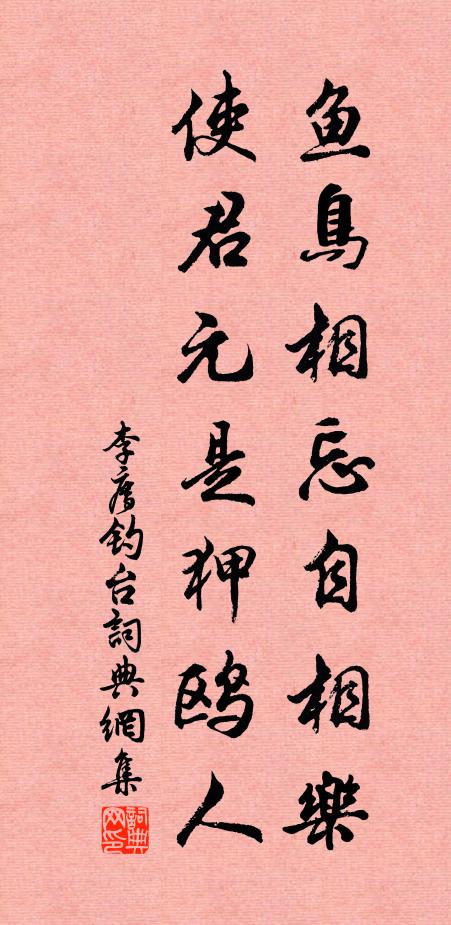 鱼鳥相忘自相樂
使君元是狎鷗人
李廌钓台詞典網集
詞典网印